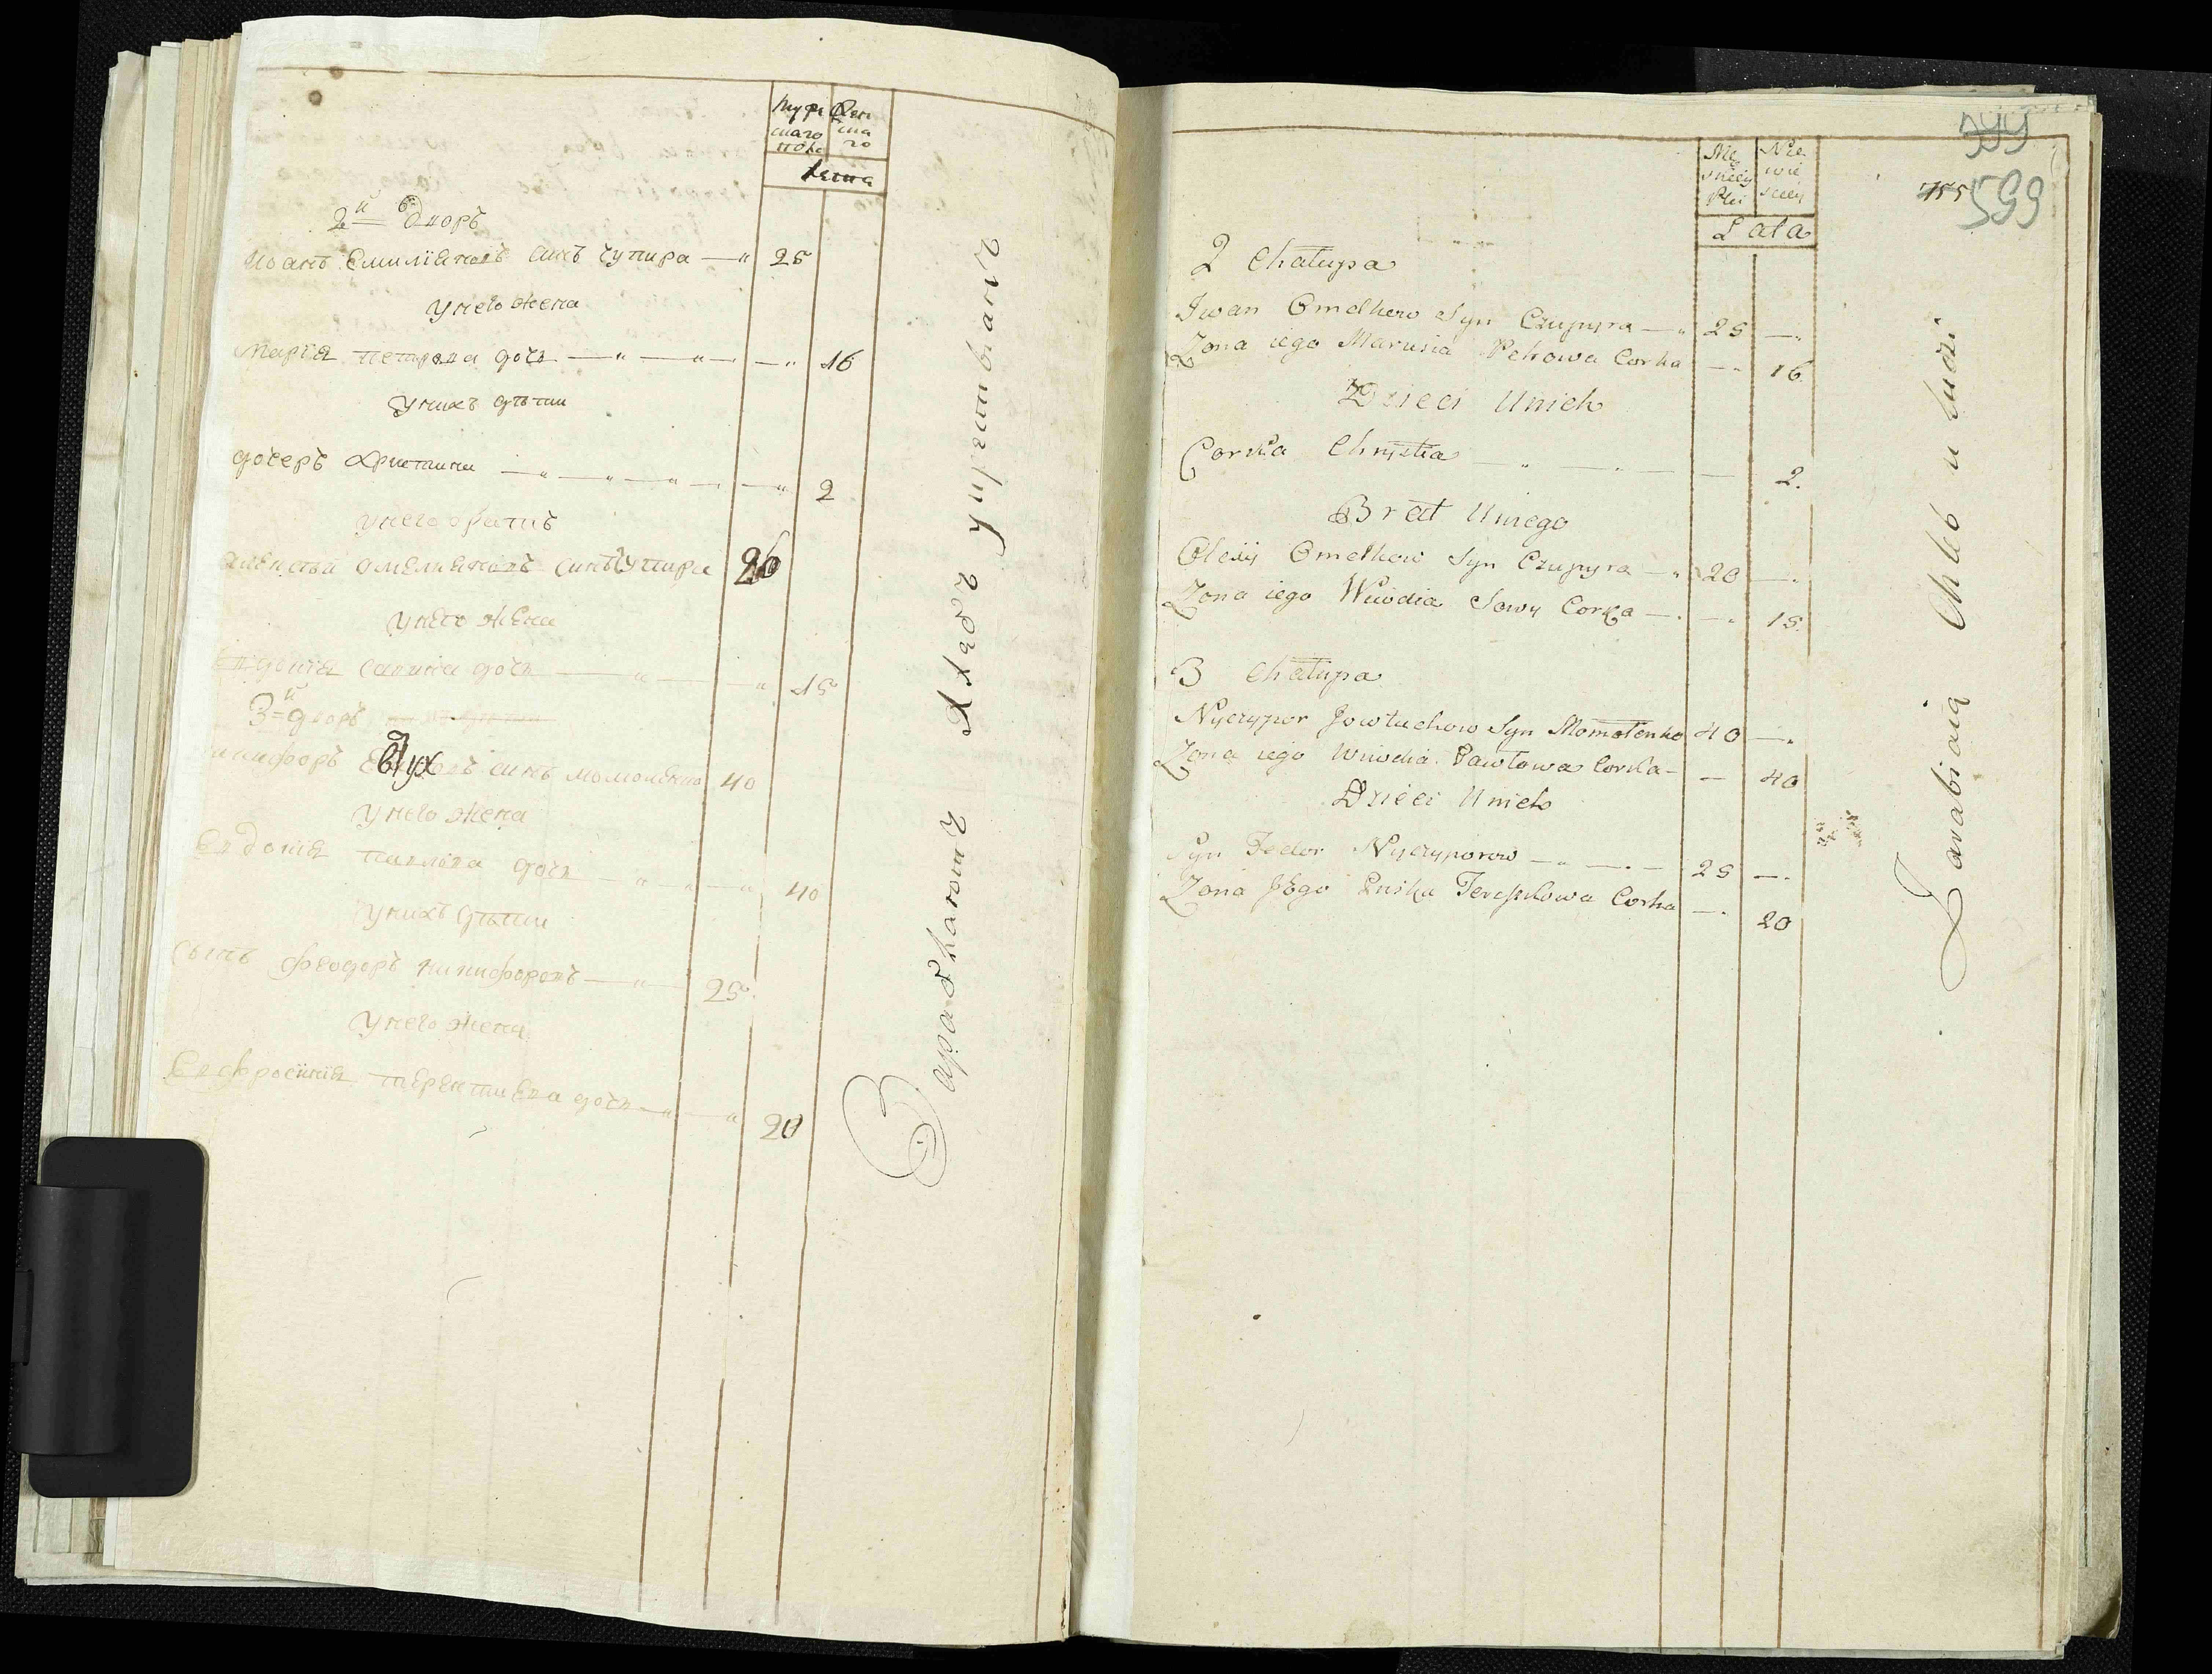 Муже
скаго
пола
Жен
ска
го
Лета
2й дворъ
Иоанъ Емилiяновъ синъ Чупира — 25
у него жена
Марiя Петрова дочь — 16
у нихъ дѣти
дочеръ Христина — 2
у него братъ
Алексѣй Омеляновъ синъ Чупира 20
у него жена
Евдокiя Савина дочь — 15
3й дворъ
Никифоръ Евтуховъ синъ Момотенко 40
у него жена
Евдокiя Павлова дочь — 40
у нихъ дѣти
сынъ Феодоръ Никифоровъ — 25
у него жена
Евфросинiя Терентиева дочь — 20
Заработкомъ хлѣбъ у
Mę
skiey
Płci
Nie
wie
sciey
Lata
755
599
2 Chałupa
Iwan Omelkow Syn Czupyra — 25 —
Zona iego Marusia Petrowa Corka — 16
Dzieci Unich
Corka Christia — 2.
Brat Uniego
Olexiy Omelkow Syn Czupyra — 20 —
Zona iego Wiwdia Sawy Corka — 15.
3 Chałupa
Nyczypor Jowtuchow Syn Momotenko 40 —
Zona iego Wiwdia Pawłowa Corka — 40
Dzieci Unich
Syn Fedor Nyczyporow — 25 —
Zona Jego Pryska Tereszkowa Corka — 20
Zarabiaią Chleb u ludzi